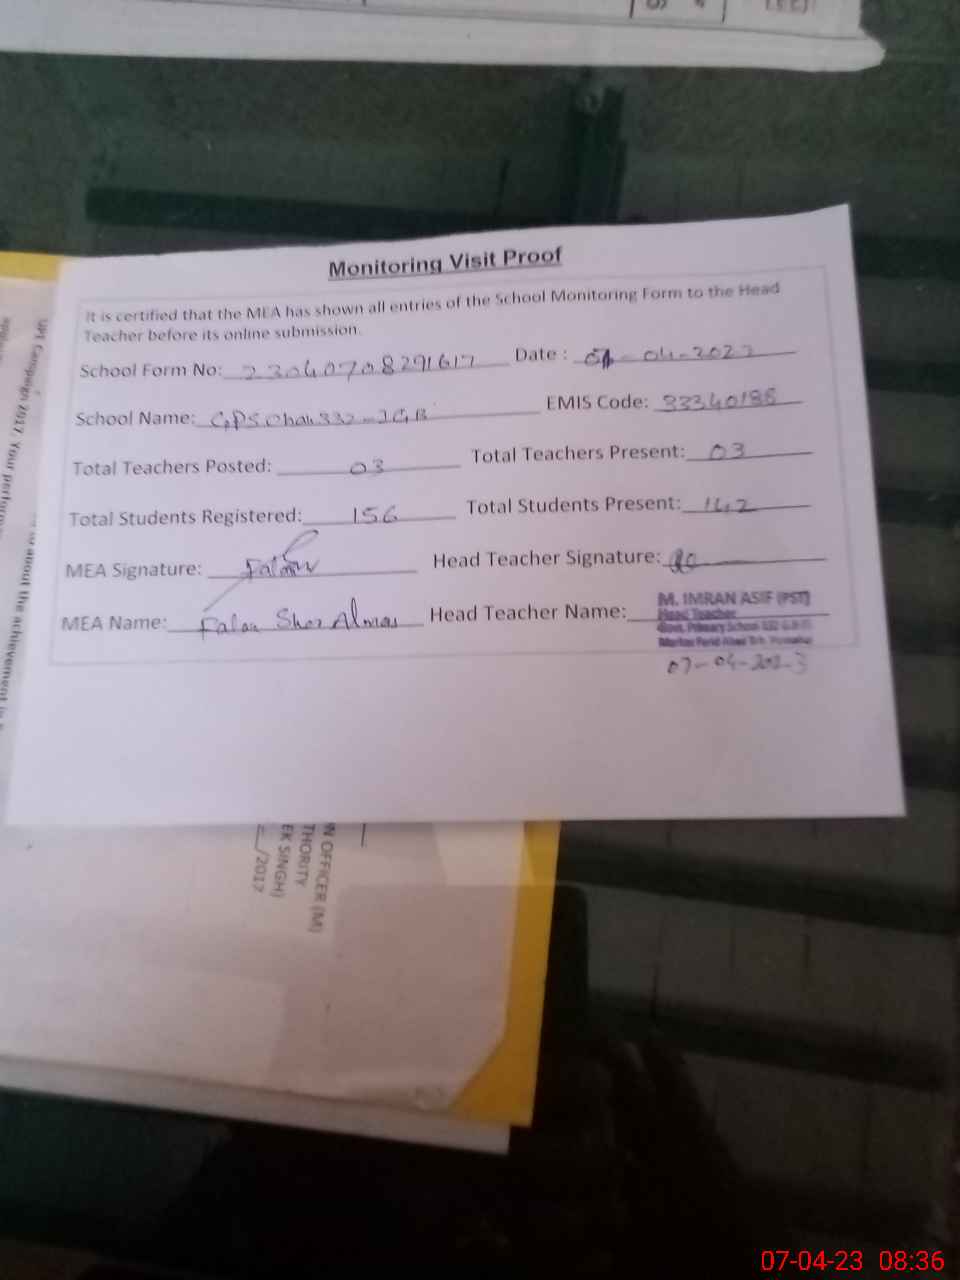 Monitoring Visit Proof
It is certified that the MEA has shown all entries of the School Monitoring Form to the Head
Teacher before its online submission.
School Form No: 23040708291617 Date : -04-2023
School Name: GPS Chak 332-JGB EMIS Code: 33340188
Total Teachers Posted: 03 Total Teachers Present: 03
Total Students Registered: 156 Total Students Present: 142
MEA Signature: Falak Head Teacher Signature:
MEA Name: Falak Sher Almas Head Teacher Name: M. IMRAN ASIF (PST)
Head Teacher
Govt. Primary School 332
07-04-2023
UPE Campaign 2017. Your
about the achievement
OFFICER (M)
THORITY
EK SINGH)
/2017
07-04-23 08:36